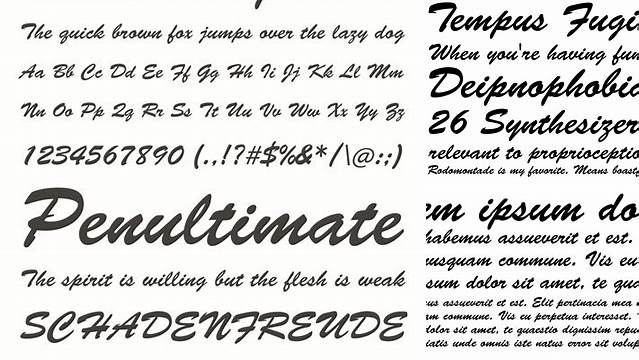 The quick brown fox jumps over the lazy dog
Aa Bb Cc Dd Ee Ff Gg Hh Ii Jj Kk Ll Mm
Nn Oo Pp Qq Rr Ss Tt Uu Vv Ww Xx Yy Zz
1234567890 (.,!?#$%&*/\@:;)
Penultimate
The spirit is willing but the flesh is weak
SCHADENFREUDE
Tempus Fugi
When you're having fun
Deipnophobia
26 Synthesizer
relevant to proprioceptio
Rodomontade is my favorite. Means boastf
em ipsum do
habemus assueverit et est.
usquam commune. Vis eu
sum dolor sit amet, te qu
us assueverit et est. Elit pertinacia mea
am commune. Vis eu perpetua interesset.
dolor sit amet, te quaestio dignissim repu
iatis unde omnis iste natus error sit volup